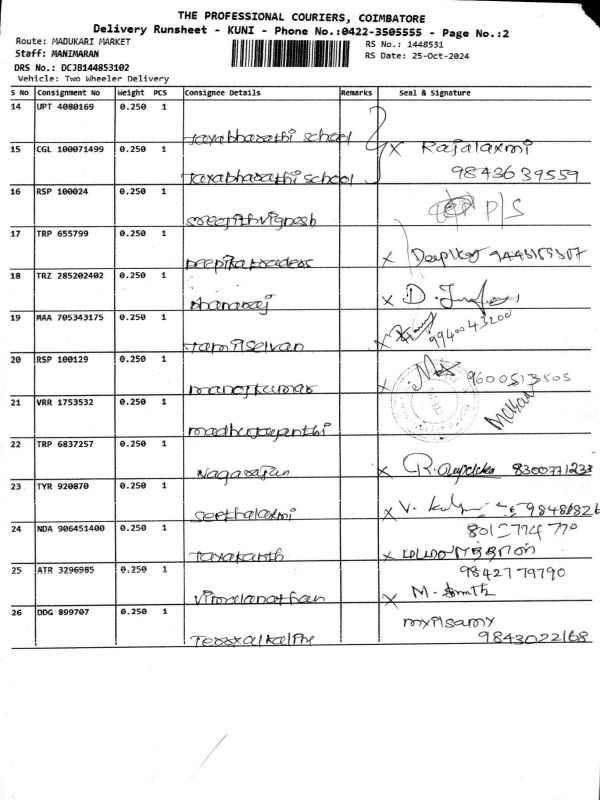 THE PROFESSIONAL COURIERS, COIMBATORE
Delivery Runsheet - KUNI - Phone No.:0422-3505555 - Page No.:2
Route: MADUKARI MARKET
RS No.: 1448531
Staff: MANIMARAN
RS Date: 25-Oct-2024
DRS No.: DCJB144853102
Vehicle: Two Wheeler Delivery
S No Consignment No Weight PCS Consignee Details Remarks Seal & Signature
14 UPT 4080169 0.250 1
Jayabharathi school
15 CGL 100071499 0.250 1 x Rajalaxmi
Jayabharathi school 9843639559
16 RSP 100024 0.250 1 P/S
sreejithvignesh
17 TRP 655799 0.250 1
x
18 TRZ 285202402 0.250 1
Dhanaraj x D.
19 MAA 705343175 0.250 1
Tamilselvan x 9940043200
20 RSP 100129 0.250 1
manojkumar x 9600513505
21 VRR 1753532 0.250 1
madhujayanthi
22 TRP 6837257 0.250 1
Nagarajan x 8300771233
23 TYR 920870 0.250 1
seethalaxmi x V.
24 NDA 906451400 0.250 1
Jayakanth x
25 ATR 3296985 0.250 1 9842779790
vimalanathan x M.
26 DDG 899707 0.250 1
9843022168